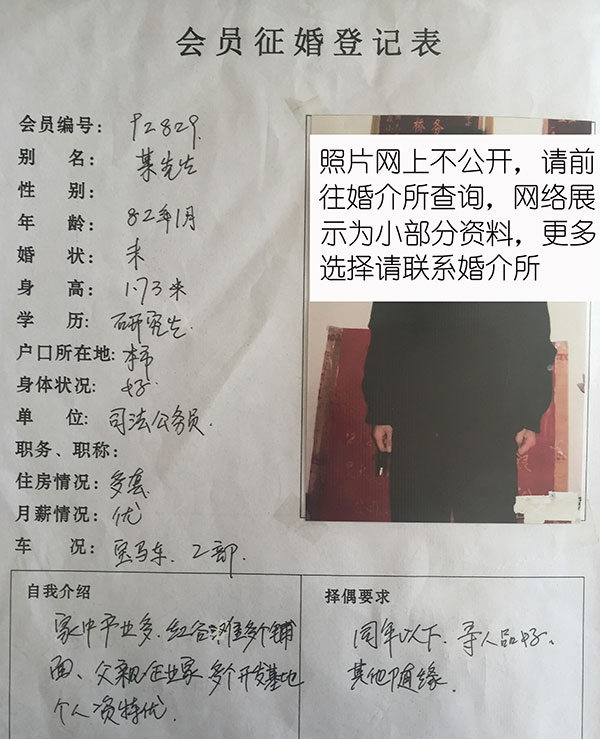 会员征婚登记表
会员编号: 92829.
别 名: 某先生
性 别:
年 龄: 82年1月
婚 状: 未
身 高: 1.73米
学 历: 研究生
户口所在地: 本市
身体状况: 好
单 位: 司法公务员.
职务、职称:
住房情况: 多套
月薪情况: 优
车 况: 宝马车. 2部.
照片网上不公开，请前
往婚介所查询，网络展
示为小部分资料，更多
选择请联系婚介所
自我介绍
家中产业多. 红谷滩多个铺
面、父亲企业家 多个开发基地
个人资特优.
择偶要求
同年以下. 寻人品好、
其他随缘.